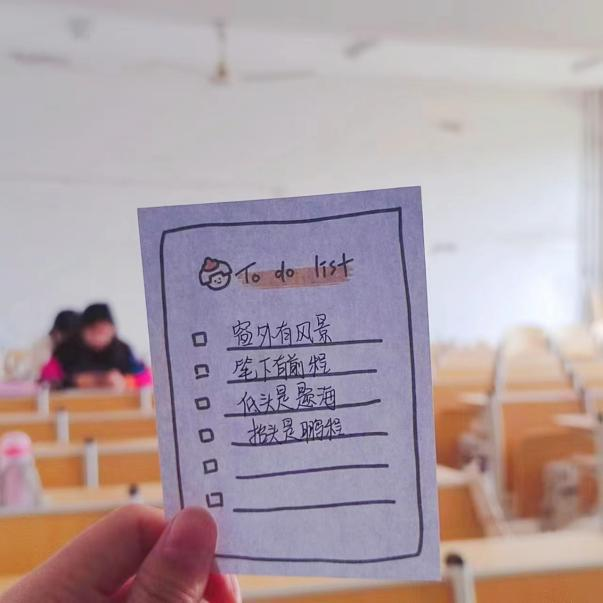 To do list
窗外有风景
笔下有前程
低头是题海
抬头是鹏程